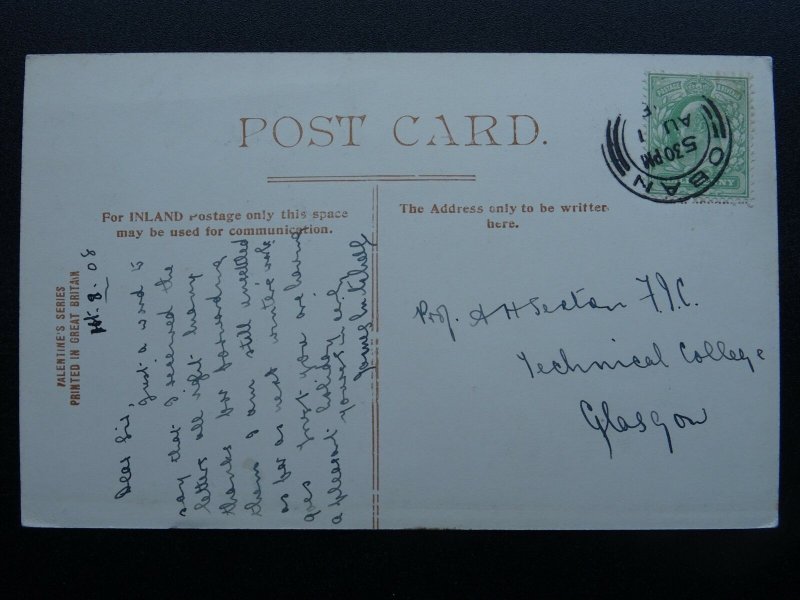 POST CARD.
For INLAND Postage only this space
may be used for communication.
The Address only to be written
here.
VALENTINE'S SERIES
PRINTED IN GREAT BRITAIN
1st. 8. 08
Dear Sir,
Just a word to
say that I received the
letters all right many
thanks for forwarding
them I am still unsettled
as far as next winter's work
goes trust you are having
a pleasant holiday
yours
Prof. A H Sexton F.I.C.
Technical College
Glasgow
OBAN
5 30 PM
AU 1